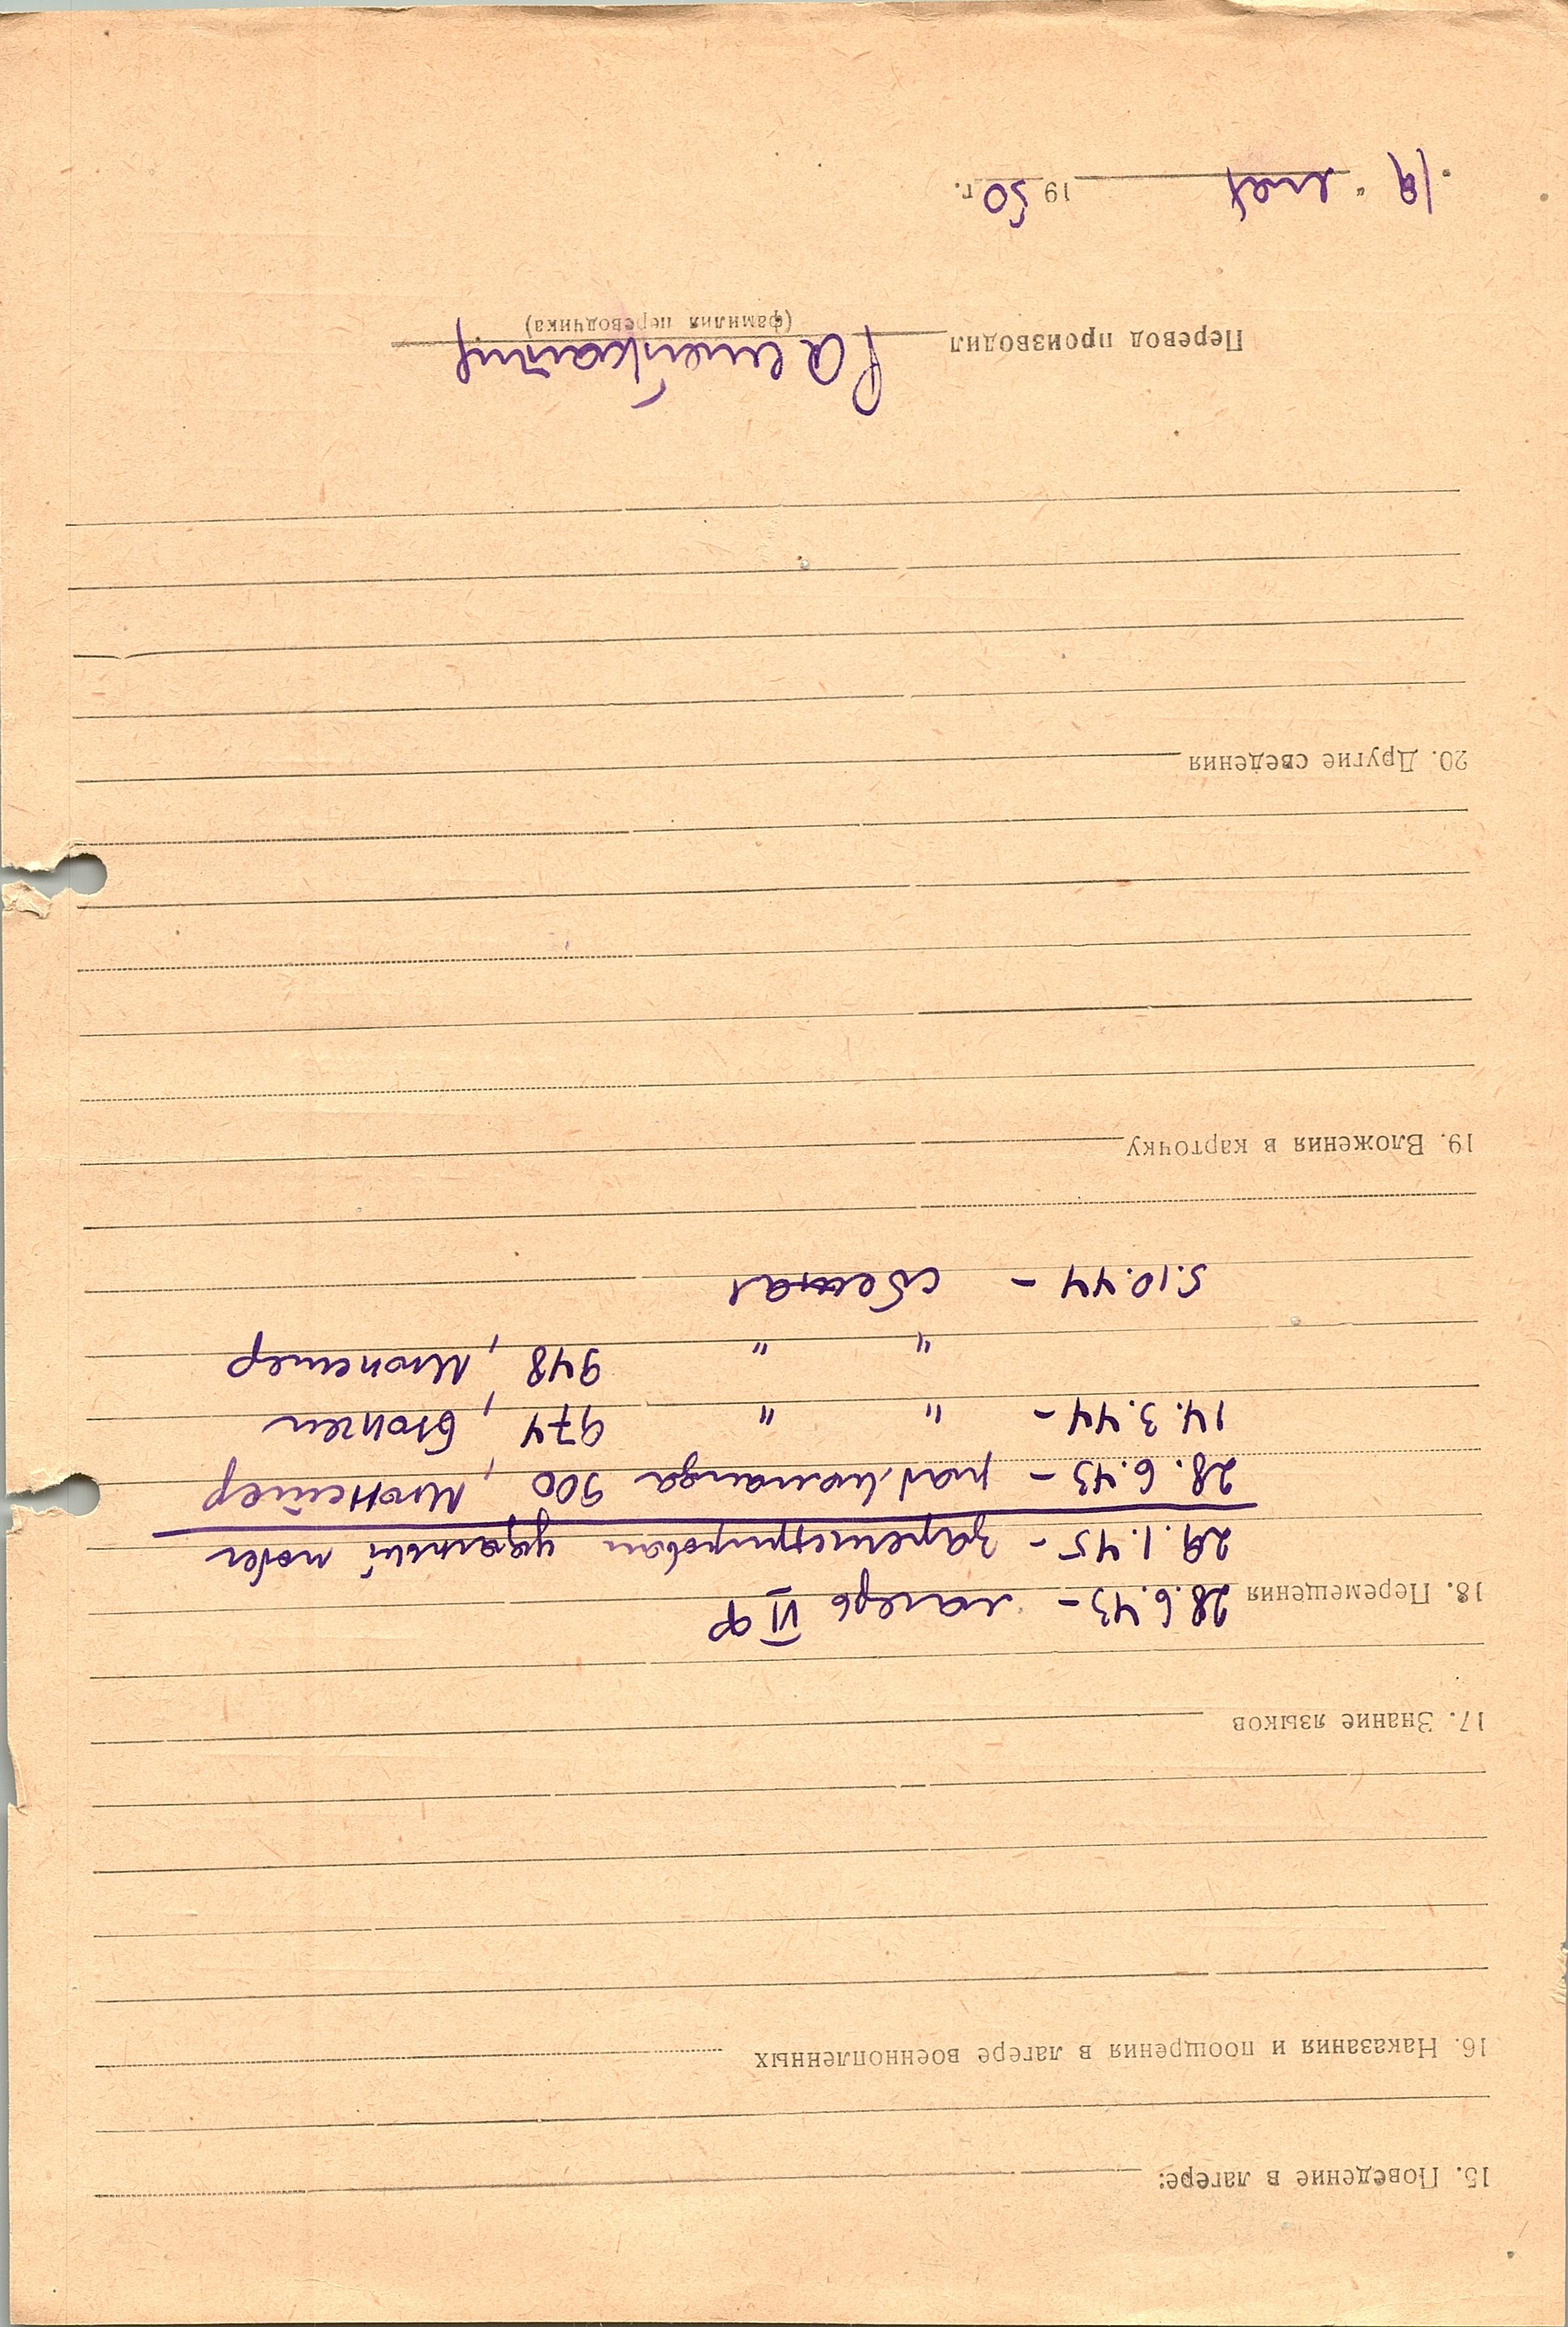 15. Поведение в лагере:
16. Наказания и поощрения в лагере военнопленных
17. Знание языков
18. Перемещения 28.6.43 – лагерь VI Ф
29.1.45 – зарегистрирован удачный побег
28.6.43 – раб. команда 500, Мюнстер
14.3.44 – " " 974, Бохолт
" " 948, Мюнстер
5.10.44 – сбежал
19. Вложения в карточку
20. Другие сведения
Перевод производил
(фамилия переводчика)
"19" мая 1950 г.